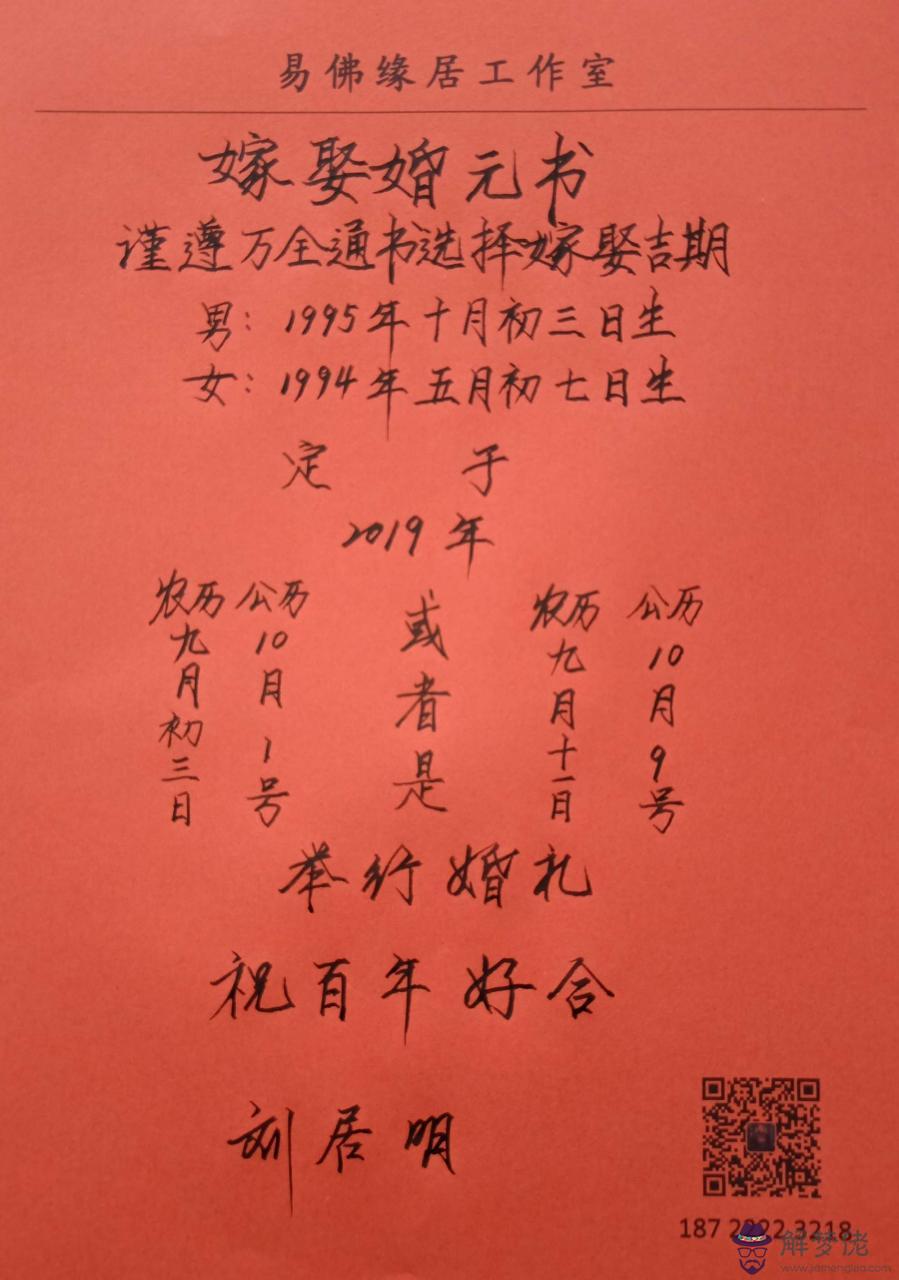 易佛缘居工作室
嫁娶婚元书
谨遵万全通书选择嫁娶吉期
男：1995年十月初三日生
女：1994年五月初七日生
定 于
2019年
农历九月初三日
公历10月1号
或者是
农历九月十一日
公历10月9号
举行婚礼
祝百年好合
刘居明
187 2 3218
解梦佬
www.jiemenglao.com